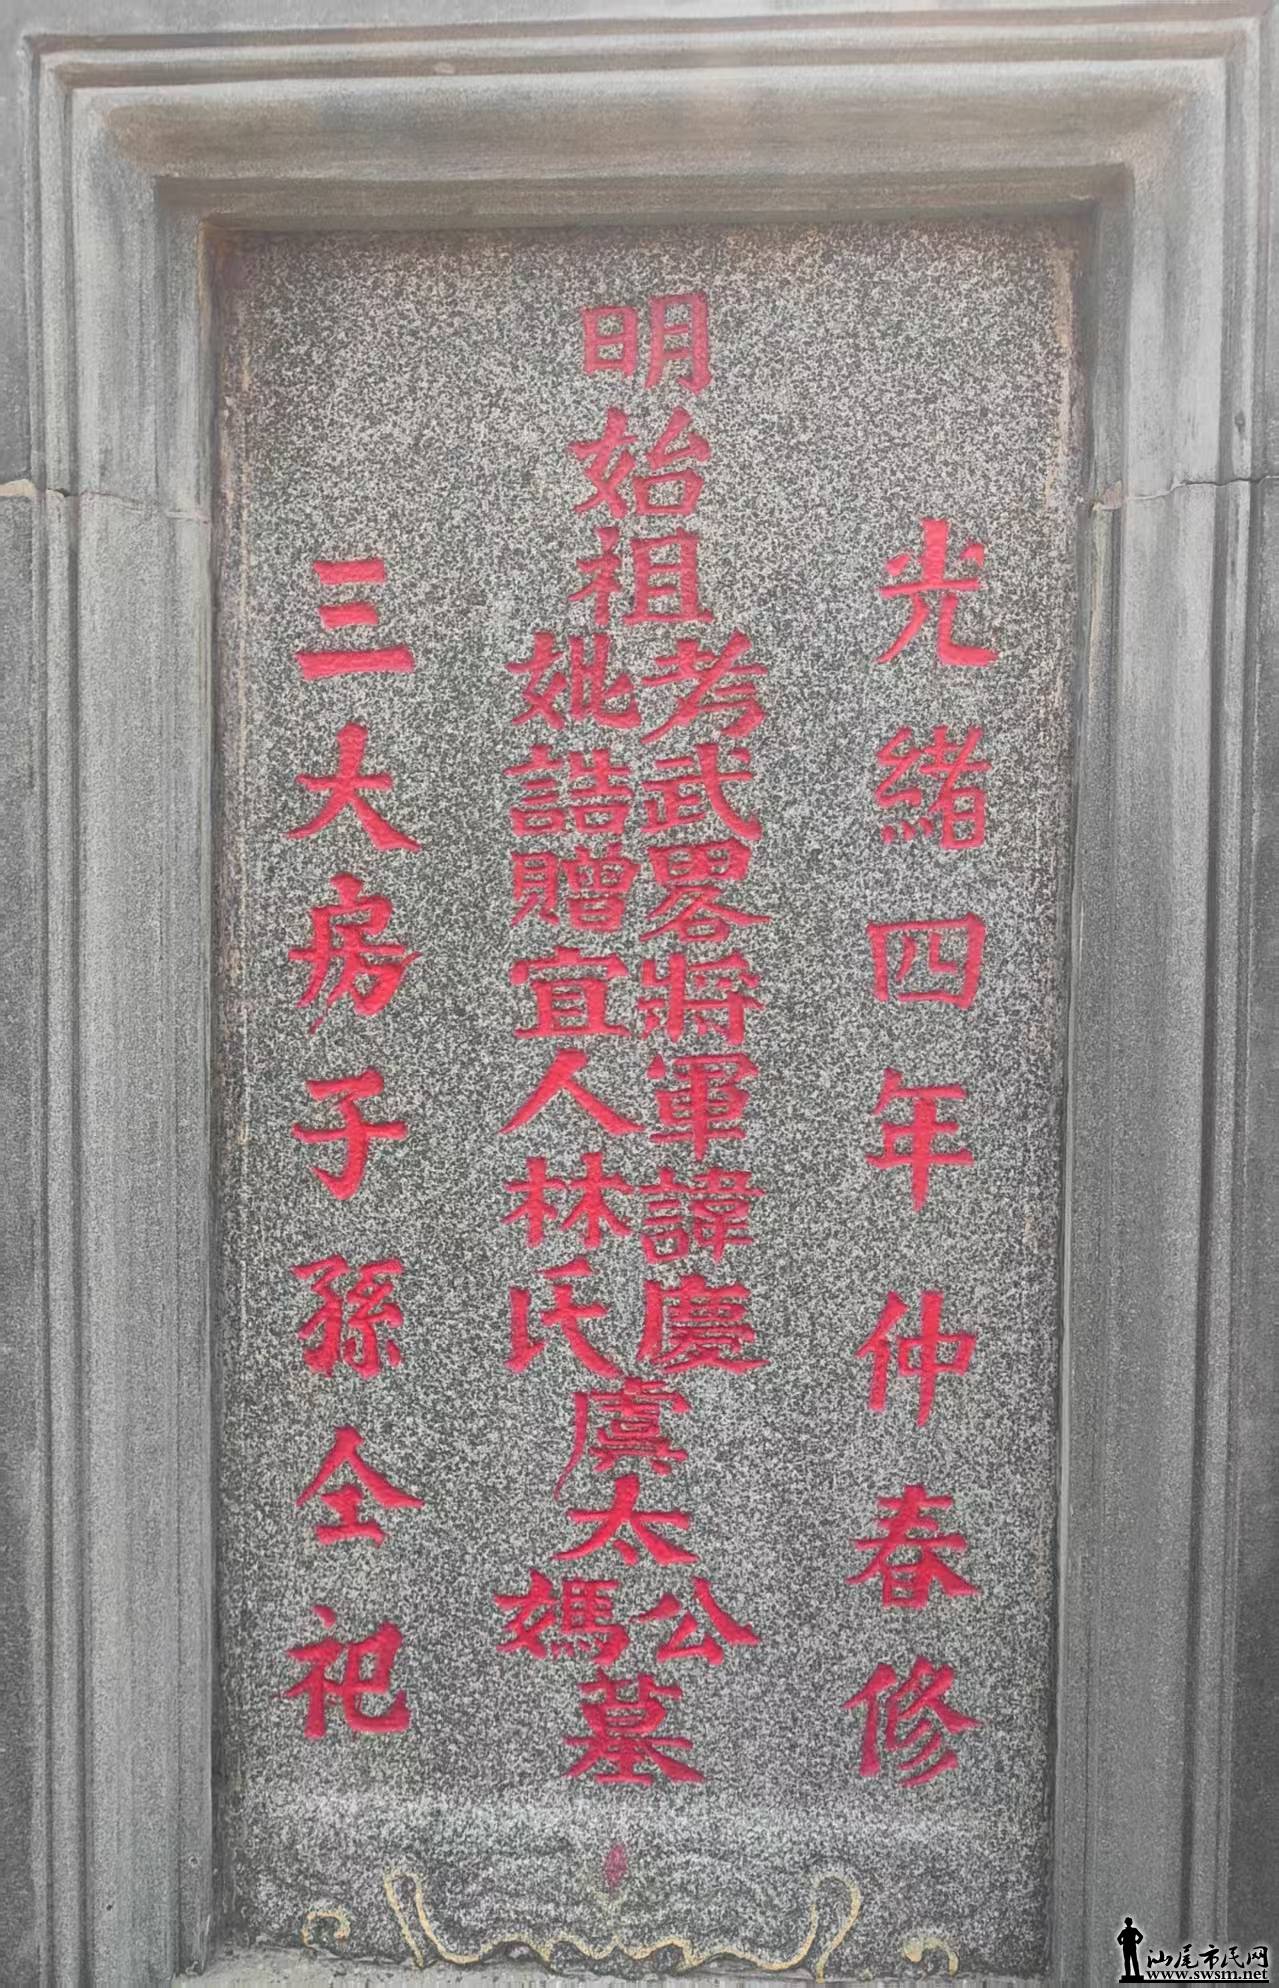 光緒四年仲春修
明始祖
考武畧將軍諱慶
妣誥贈宜人林氏
虞太
公
媽
墓
三大房子孫仝祀
汕尾市民网
www.swsm.net